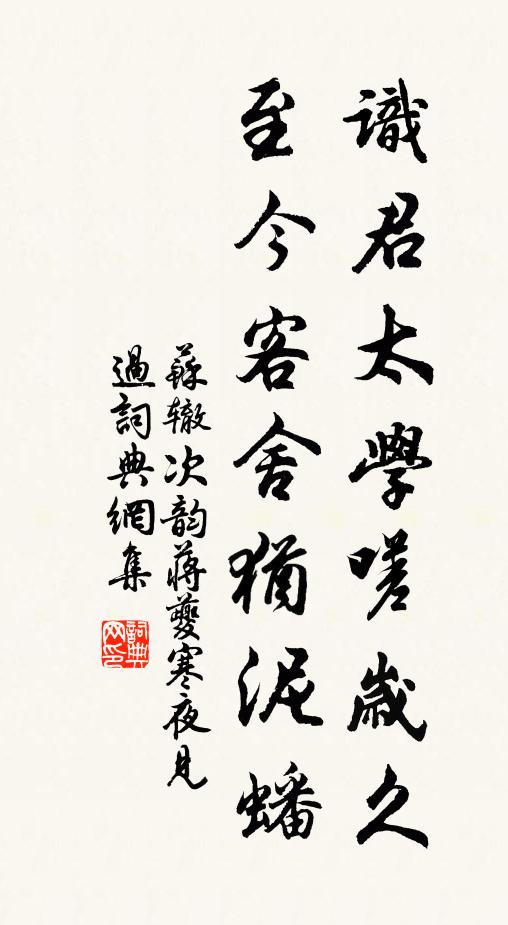 識君太學嗟歲久
至今客舍猶泥蟠
蘇轍次韵蔣夔寒夜見
過詞典網集
詞典
网印